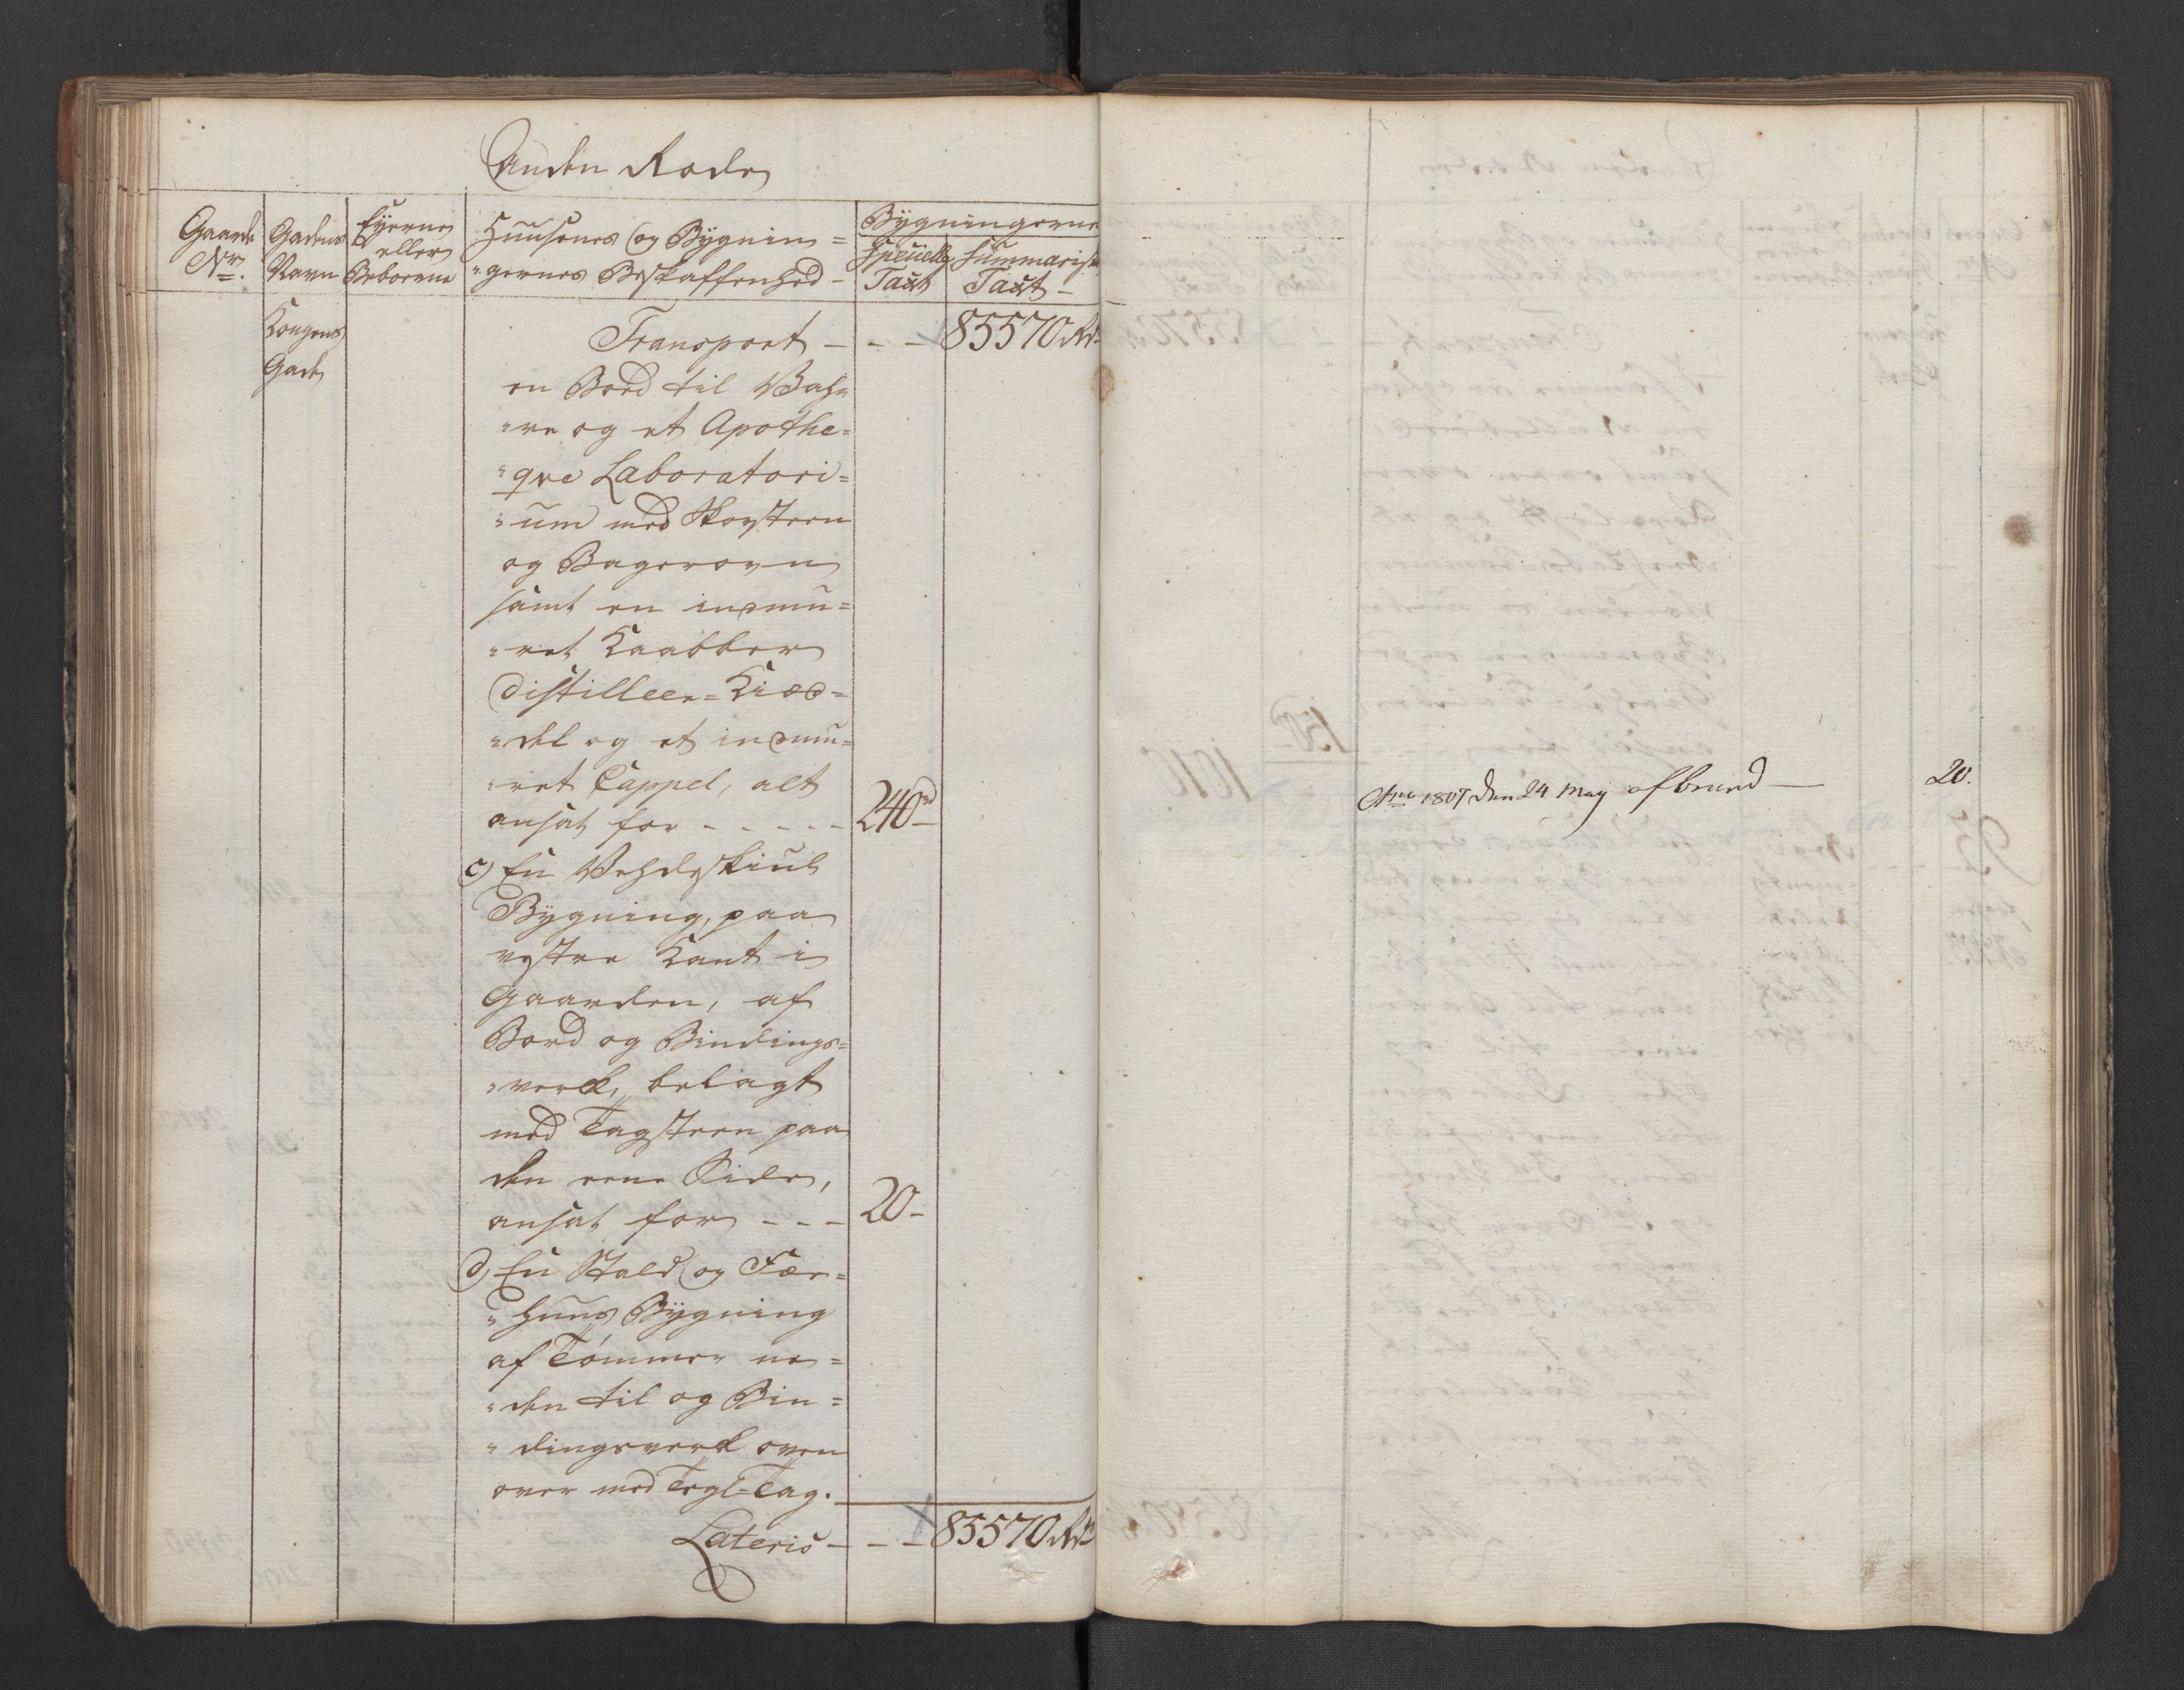 Anden Rode
Gaards No.
Gadens Navn
Eyerne eller Beboerne
Huusenes og Bygnin=
"gernes Beskaffenhed -
Bygningerne
Speciell Taxt
Summarisk Taxt -
Kongens
Gade
Transport - - - 85570 Rd
en Bord til Vah=
"re og et Apothe=
"qve Laboratori=
"um med Skorsteen
og Bagerovn
samt en indmu=
"ret Kaabber
Distilleer=Kied=
"del og et indmu=
"ret Cappel, alt
ansat for - - - - - 240 rd
c) En Vehdeskiul
Bygning, paa
vestre Kant i
Gaarden, af
Bord og Bindings=
"verck, belagt
med Tagsteen paa
den eene Side,
ansat for - - - 20 -
d) En Stald og Fæe=
"huus Bygning
af Tömmer ne=
"den til og Bin=
"dingsverck oven
over med Tegl=Tag.
Lateris - - - 85570 Rd
Ano 1807 den 24 May afbrund — 20.